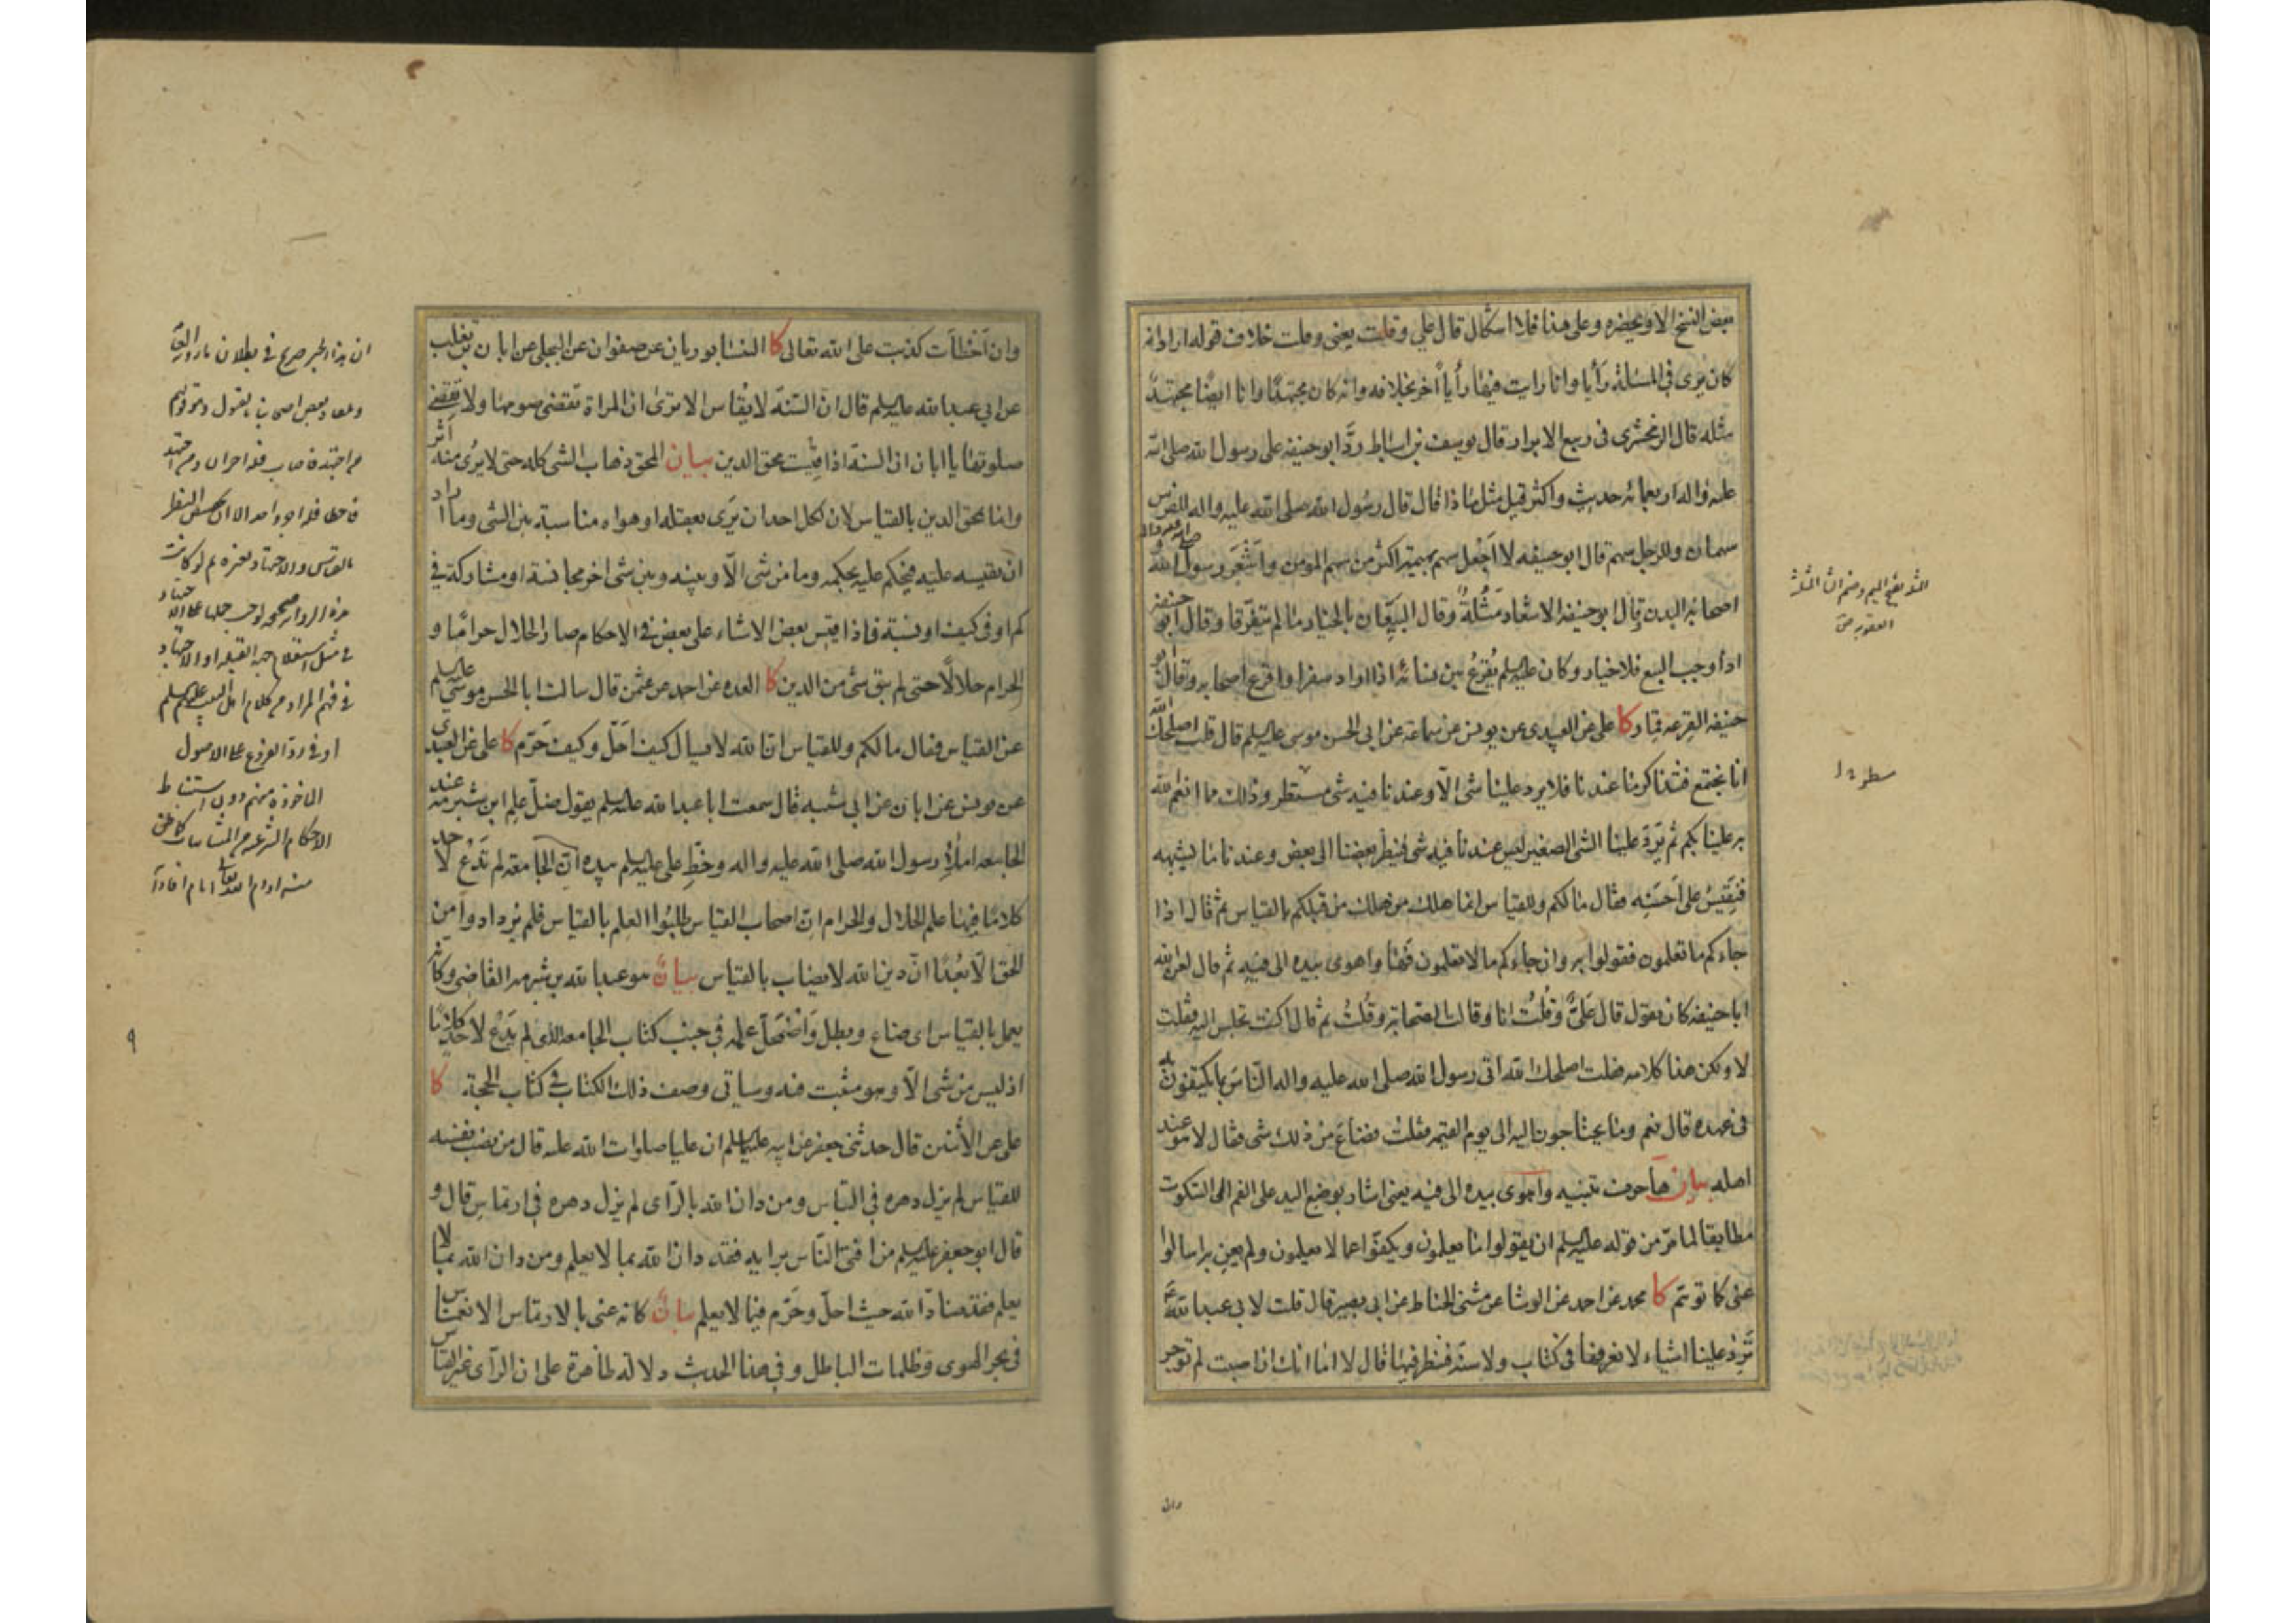 بعض النسخ الا ويحضره وعلى هذا فلا اشكال قال علي وقلت يعنى وقلت خلاف قوله اراد انه
كان يرى في المسئلة رأيا وانا رايت فيها رأياً اخر بخلافه وانه كان مجتهدًا وانا ايضًا مجتهدٌ
مثله قال الزمخشرى فى ربيع الابرار قال يوسف بن اسباط ردَّ ابو حنيفه على رسول الله صلى الله
عليه واله اربعمائه حديث واكثر قيل مثل ماذا قال قال رسول الله صلى الله عليه واله للفرس
سهمان وللرجل سهم قال ابو حنيفه لا اجعل سهم بهيمة اكثر من سهم المومن واشعر رسول الله صلى الله عليه واله و
اصحابه البدن قال ابو حنيفه الاشعار مَثُلةٌ وقال البيّعان بالخيار ما لم يتفرقا وقال ابو حنيفه
اذا وجب البيع فلا خيار وكان عليه السلم يُقرعُ بين نسائه اذا اراد سفرا واقرع اصحابه وقال ابو
حنيفه القرعه قمار كا علي عن العبيدى عن يونس عن سماعة عن ابى الحسن موسى عليه السلم قال قلت اصلحك الله
انا نجتمع فنتذاكر ما عندنا فلا يرد علينا شى الّا وعندنا فيه شى مستطر وذلك مما انعم الله
به علينا بكم ثم يَرِدُ علينا الشى الصغير ليس عندنا فيه شى فينظر بعضنا الى بعض وعندنا ما يشبهه
فنقيسُ على احسنه فقال مالكم وللقياس انما هلك من هلك من قبلكم بالقياس ثم قال اذا
جاءكم ما تعلمون فقولوا به وان جاءكم ما لا تعلمون فهَا واهوى بيده الى فيه ثم قال لعن الله
ابا حنيفه كان يقول قال عَليٌّ وقُلتُ انا وقالت الصحابة وقُلتُ ثم قال اكنت تجلس اليه فقلت
لا ولكن هذا كلامه فقلت اصلحك الله اتى رسول الله صلى الله عليه واله الناسَ بما يكتفون به
فى عهده قال نعم وما يحتاجون اليه الى يوم القيمة فقلت فضاعَ من ذلك شى فقال لا هو عند
اهله بيان ها حرف تنبيه واهوى بيده الى فيه يعنى اشار بوضع اليد على الفم الى السكوت
مطابقا لما مرّ من قوله عليه السلم ان يقولوا ما يعلمون ويكفّوا عما لا يعلمون ولم يعن به اسالوا
عنى كا توهم كا محمد عن احمد عن الوشا عن مثنى الحناط عن ابى بصير قال قلت لابى عبد الله ع
تَرِدُ علينا اشياء لا نعرفها فى كتاب ولا سنة فننظر فيها قال لا اما انك ان اصبت لم توجر
وان
المثلة بفتح الميم وضم الثا المثلثة
العقوبه ص
سطره ا
وان اخطأت كذبت على الله تعالى كا النيسابوريان عن صفوان عن البجلى عن ابان بن تغلب
عن ابي عبد الله عليه السلم قال ان السّنة لا يقاس الا ترى ان المراة تقضى صومها ولا تقضى
صلوتها يا ابان ان السنة اذا قيست محق الدين بيان المحق ذهاب الشى كله حتى لا يرى منه اثر
وانما محق الدين بالقياس لان لكل احد ان يَرى بعقله او هواه مناسبة بين الشى وما اراد
ان يقيسه عليه فيحكم عليه بحكمه وما من شى الّا وبينه وبين شى اخر مجانسة او مشاركة فى
كم او فى كيف او نسبة فاذا قيس بعض الاشاء على بعض فى الاحكام صار الحلال حرامًا و
الحرام حلالًا حتى لم يبق شئ من الدين كا العده عن احمد عن عثمن قال سالت ابا الحسن موسى عليه السلم
عن القياس فقال مالكم وللقياس ان الله لا يسال كيف احَلّ وكيف حَرّم كا علي عن العبيدى
عن يونس عن ابان عن ابى شيبه قال سمعت ابا عبد الله عليه السلم يقول ضلّ عِلم ابن شبرمه عند
الجامعه املاءِ رسول الله صلى الله عليه واله وخَطِّ علي عليه السلم بيده انّ الجامعة لم تَدَعْ لاحد
كلامًا فيها علم الحلال والحرام ان اصحاب القياس طلبُوا العِلم بالقياس فلم يزدادوا من
الحق الّا بُعْدًا انّ دين الله لا يصاب بالقياس بيانٌ هو عبد الله بن شبرمه القاضى وكان
يعمل بالقياس اى ضاع وبطل واضمَحَلّ علمه فى جنب كتاب الجامعه الذى لم يَدَع لاحدٍ كلامًا
اذ ليس من شى الّا وهو مثبت فيه وسياتى وصف ذلك الكتاب فى كتاب الحجة. كا
على عن الاثنين قال حدثنى جعفر عن ابيه عليهما السلم ان عليا صلوات الله عليه قال من نصب نفسه
للقياس لم يزل دهره فى التباس ومن دان الله بالرّاى لم يزل دهره فى ارتماسٍ قال و
قال ابو جعفر عليه السلم من افتى النّاس برايه فقد دان الله بما لا يعلم ومن دان الله بما لا
يعلم فقد ضادّ الله حيث احلّ وحَرّم فيما لا يعلم بيانٌ كانه عنى بالارتماس الانغماس
فى بحر الهوى وظلمات الباطل وفى هذا الحديث دلالة ظاهرة على ان الرّاى غير القياس
ان هذا الخبر صريح فى بطلان
من اجتهد فاصاب فله اجران ومن اجتهد
فاخطا فله اجر واحد الا ان
فى مثل استعلام جهة القبله او الاجتهاد
فى فهم المراد من كلام اهل البيت عليهم السلم
او فى ردّ الفروع على الاصول
الماخوذة منهم دون استنباط
الاحكام الشرعيه من المتشابهات
منه ادام الله تعالى ايام افاداته
٩